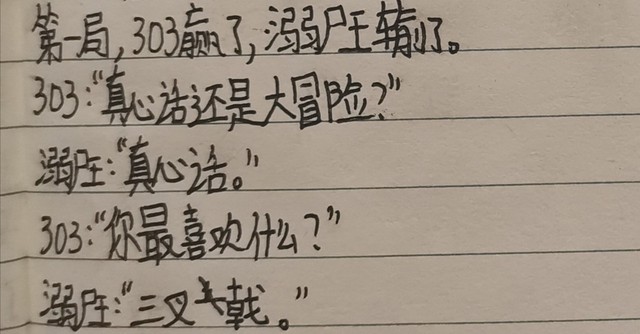 第一局，303赢了，溺尸王输了。
303：“真心话还是大冒险？”
溺尸王：“真心话。”
303：“你最喜欢什么？”
溺尸王：“三叉戟。”